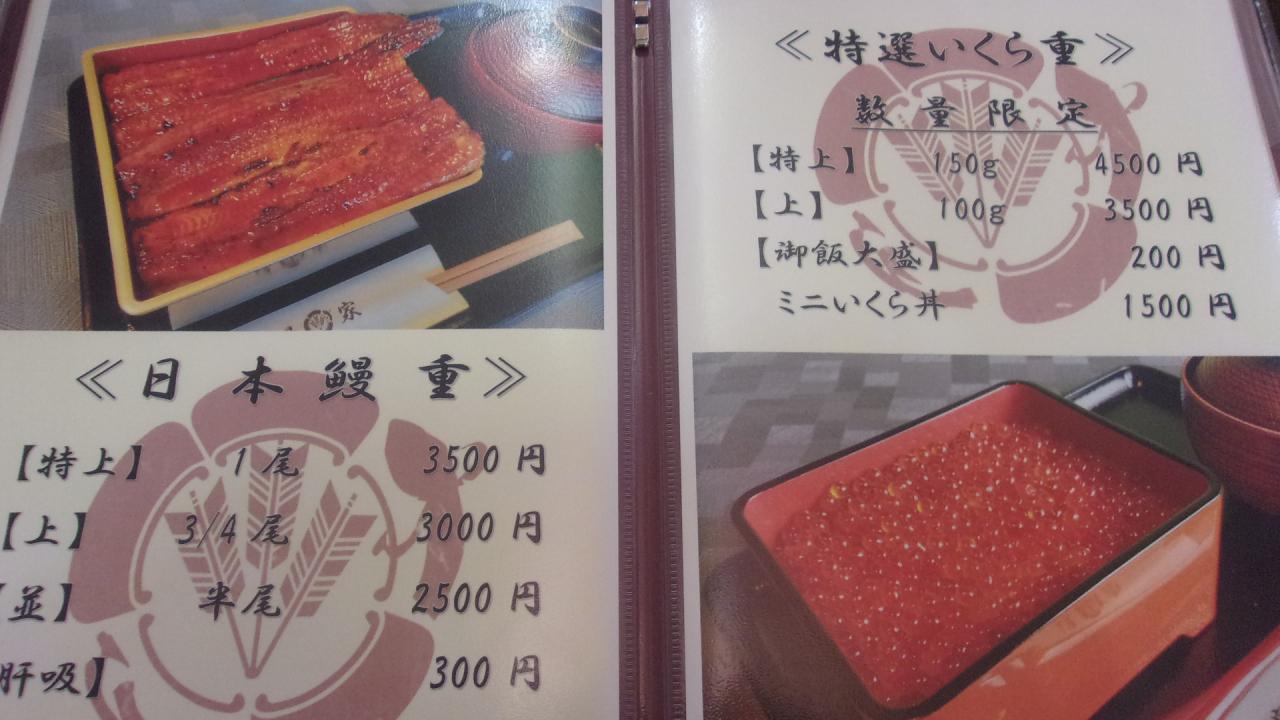 家
≪日本鰻重≫
【特上】 1尾 3500円
【上】 3/4尾 3000円
【並】 半尾 2500円
肝吸】 300円
≪特選いくら重≫
数量限定
【特上】 150g 4500円
【上】 100g 3500円
【御飯大盛】 200円
ミニいくら丼 1500円